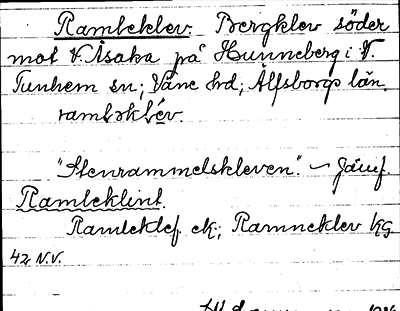 Rambeklev. Bergklev söder
mot V. Åsaka på Hunneberg i V.
Tunhem sn; Väne hrd; Älfsborgs län.
rambəklév.
"Stenrammelskleven." – Jämf.
Rambeklint.
Rambeklef ek; Ramneklev kg.
42 N.V.